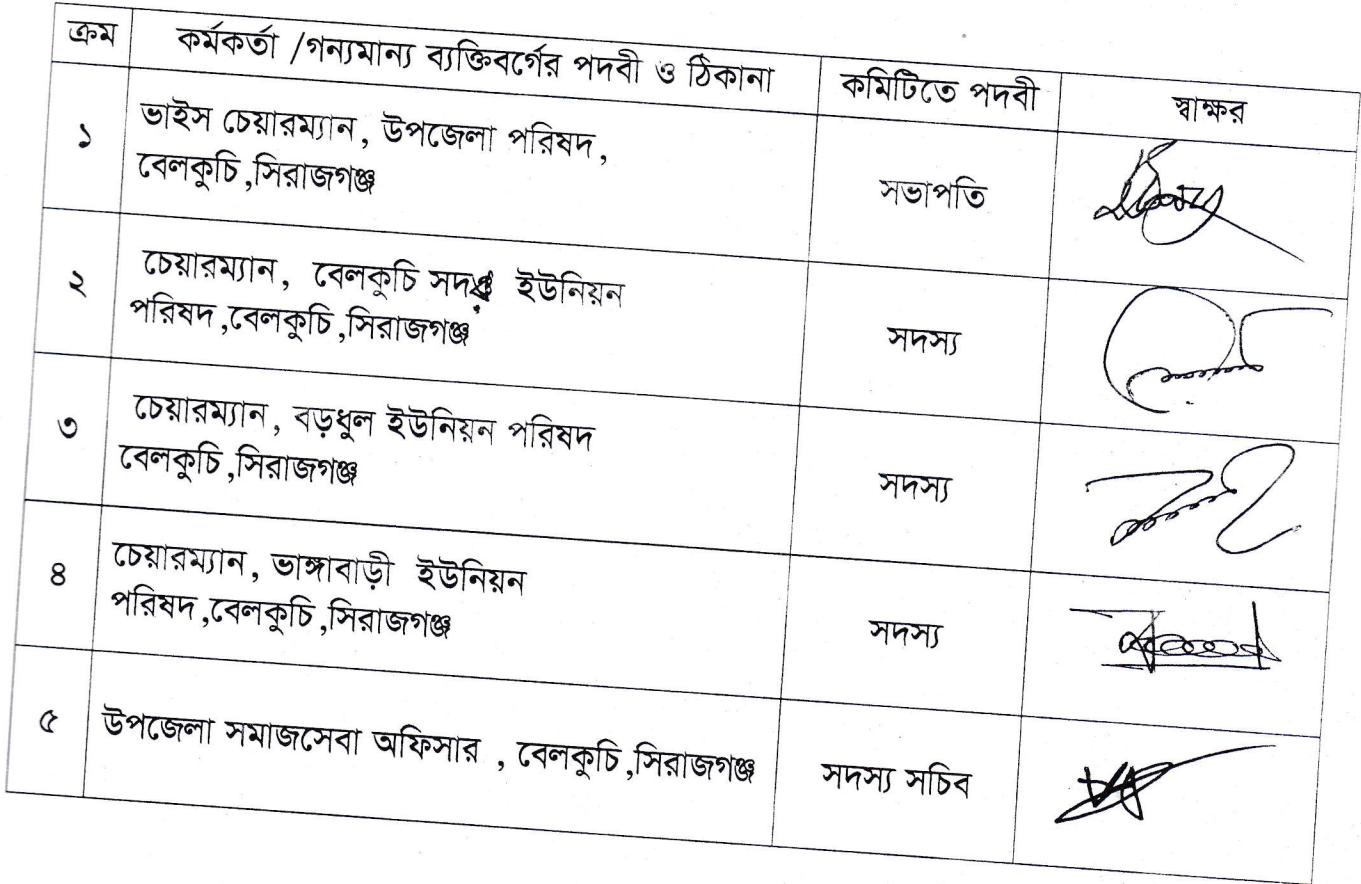 ক্রম কর্মকর্তা /গন্যমান্য ব্যক্তিবর্গের পদবী ও ঠিকানা কমিটিতে পদবী স্বাক্ষর
১ ভাইস চেয়ারম্যান, উপজেলা পরিষদ,
বেলকুচি,সিরাজগঞ্জ সভাপতি
২ চেয়ারম্যান, বেলকুচি সদর ইউনিয়ন
পরিষদ,বেলকুচি,সিরাজগঞ্জ সদস্য
৩ চেয়ারম্যান, বড়ধুল ইউনিয়ন পরিষদ
বেলকুচি,সিরাজগঞ্জ সদস্য
৪ চেয়ারম্যান, ভাঙ্গাবাড়ী ইউনিয়ন
পরিষদ,বেলকুচি,সিরাজগঞ্জ সদস্য
৫ উপজেলা সমাজসেবা অফিসার , বেলকুচি,সিরাজগঞ্জ সদস্য সচিব